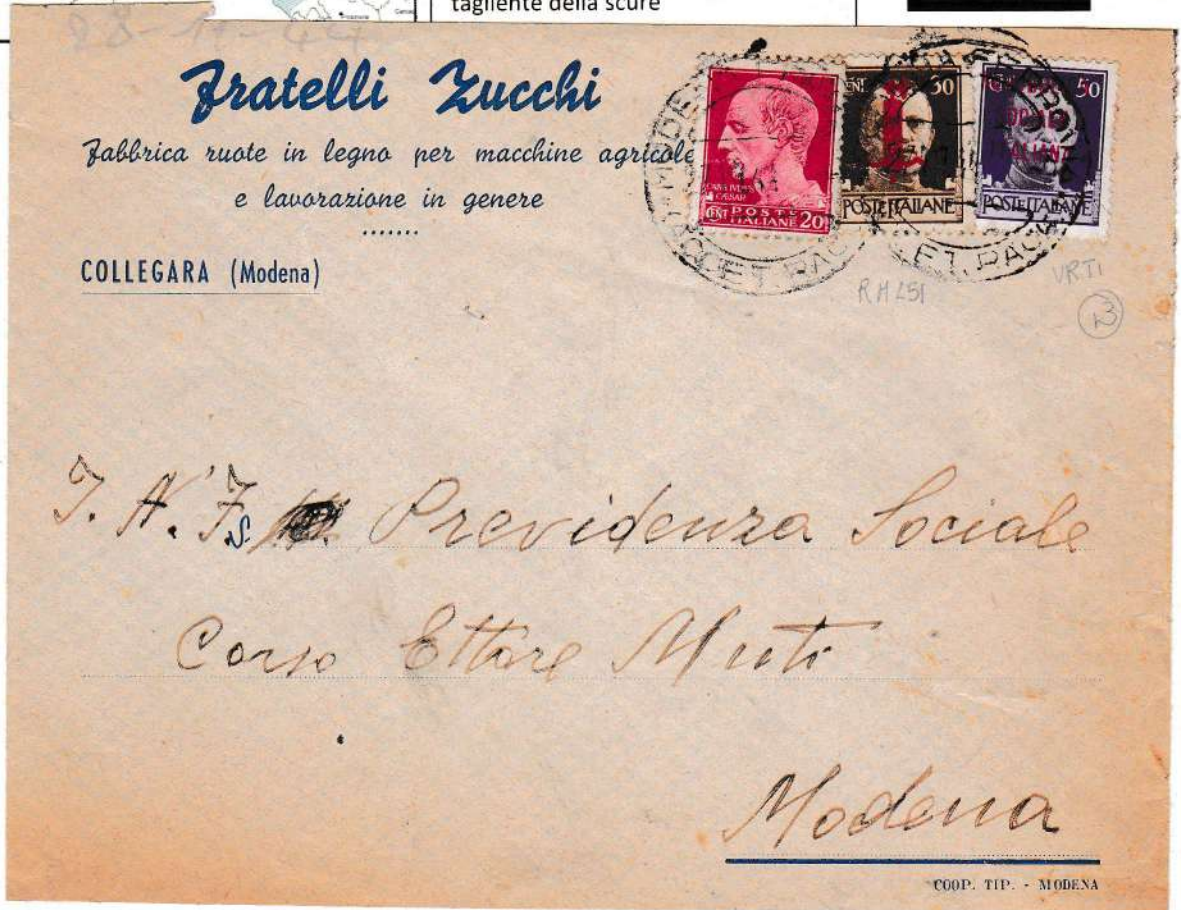 tagliente della scure
28-11-44
Fratelli Zucchi
Fabbrica ruote in legno per macchine agricole
e lavorazione in genere
.......
COLLEGARA (Modena)
CENT POSTE ITALIANE 20
30
POSTE ITALIANE
50
POSTE ITALIANE
VRTI
I. N. F. S. Previdenza Sociale
Corso Ettore Muti
Modena
COOP. TIP. - MODENA